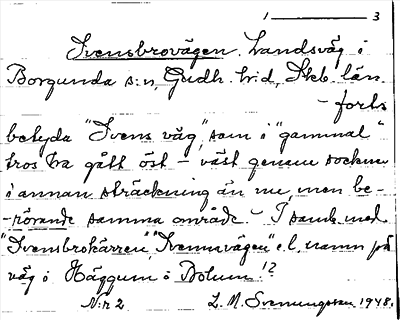 1 ———— 3
Svensbrovägen. Landsväg i
Borgunda s:n, Gudh. h:d, Skb. län.
– forts
betyda "Svens väg", som i "gammal"
tros ha gått öst – väst genom socknen
i annan sträckning än nu, men be-
-rörande samma område. – I samb. med
"Svensbrokärren", "Svennvägen" e.l. namn på
väg i Häggum o Bolum !?
N:r 2 L. M. Svenungsson 1948.